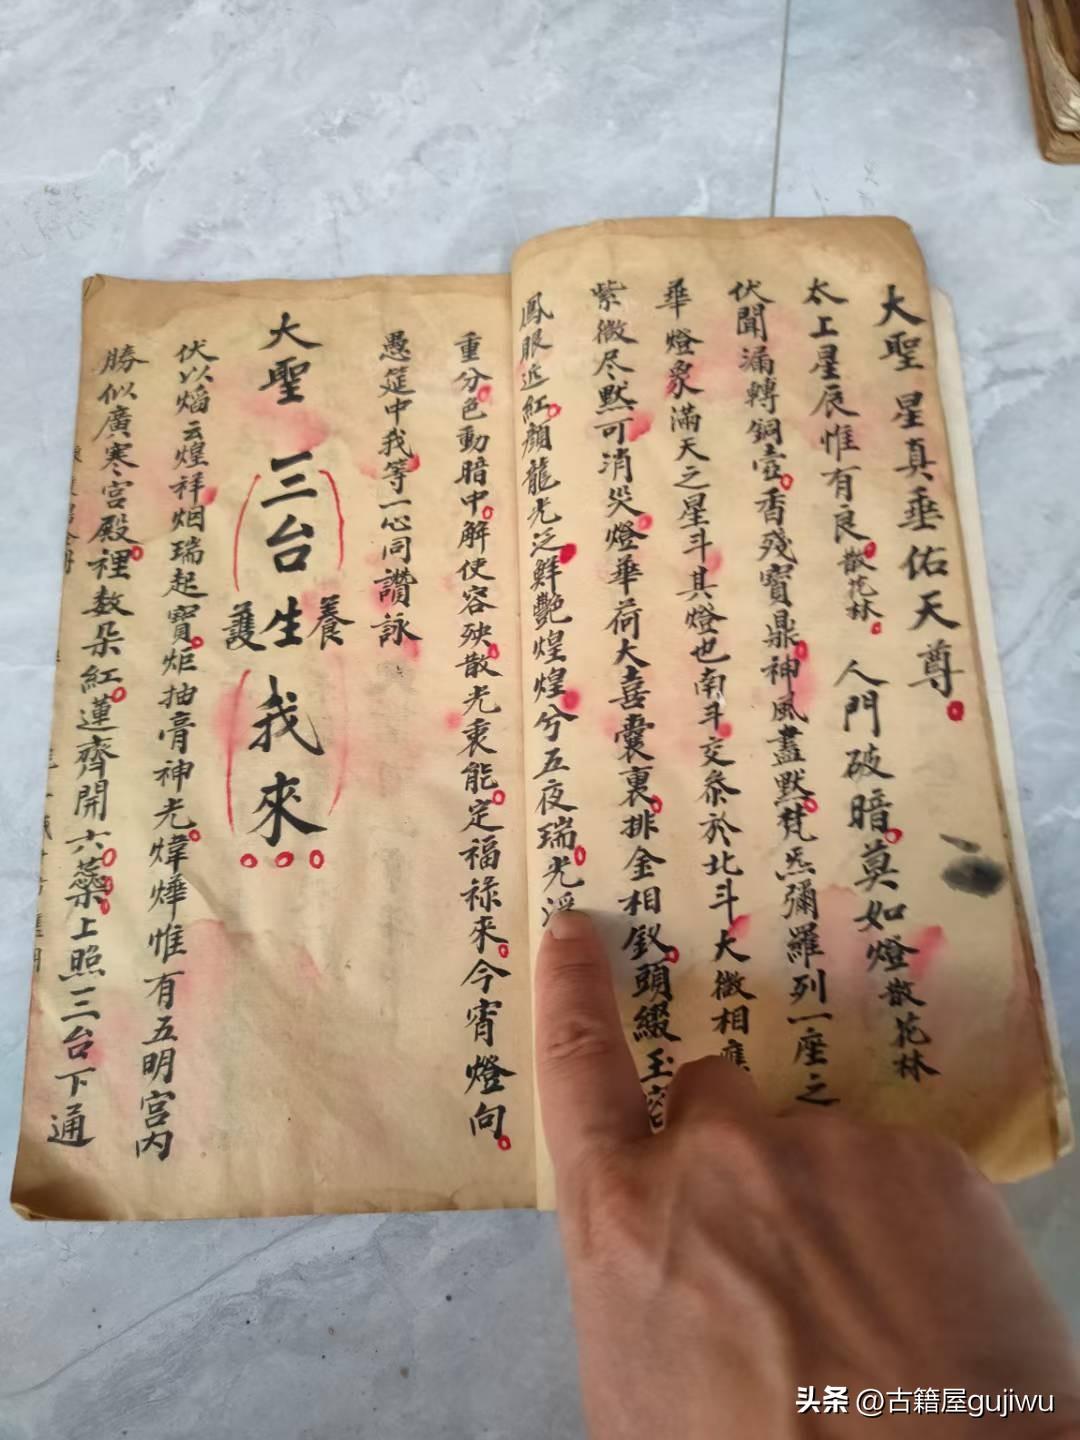 大聖星真垂佑天尊
太上星辰惟有良散花林 人門破暗莫如燈散花林
伏聞漏轉銅壺香殘寶鼎神風盡默梵炁彌羅列一座之
華燈象滿天之星斗其燈也南斗交叅於北斗大微相應
紫微尽默可消災燈華荷大喜囊裏排金相釵頭綴玉
鳳眼近紅顏龍光泛鮮艷煌煌兮五夜瑞光浮
重分色動暗中解使容殃散光衷能定福祿来今宵燈向
愚筵中我等一心同讚詠
大聖三台生我來
養
護
伏以焰云煌祥烟瑞起寳炬抽膏神光煒燁惟有五明宫内
勝似廣寒宮殿裡数朵紅蓮齊開六蘂上照三台下通
头条 @古籍屋gujiwu